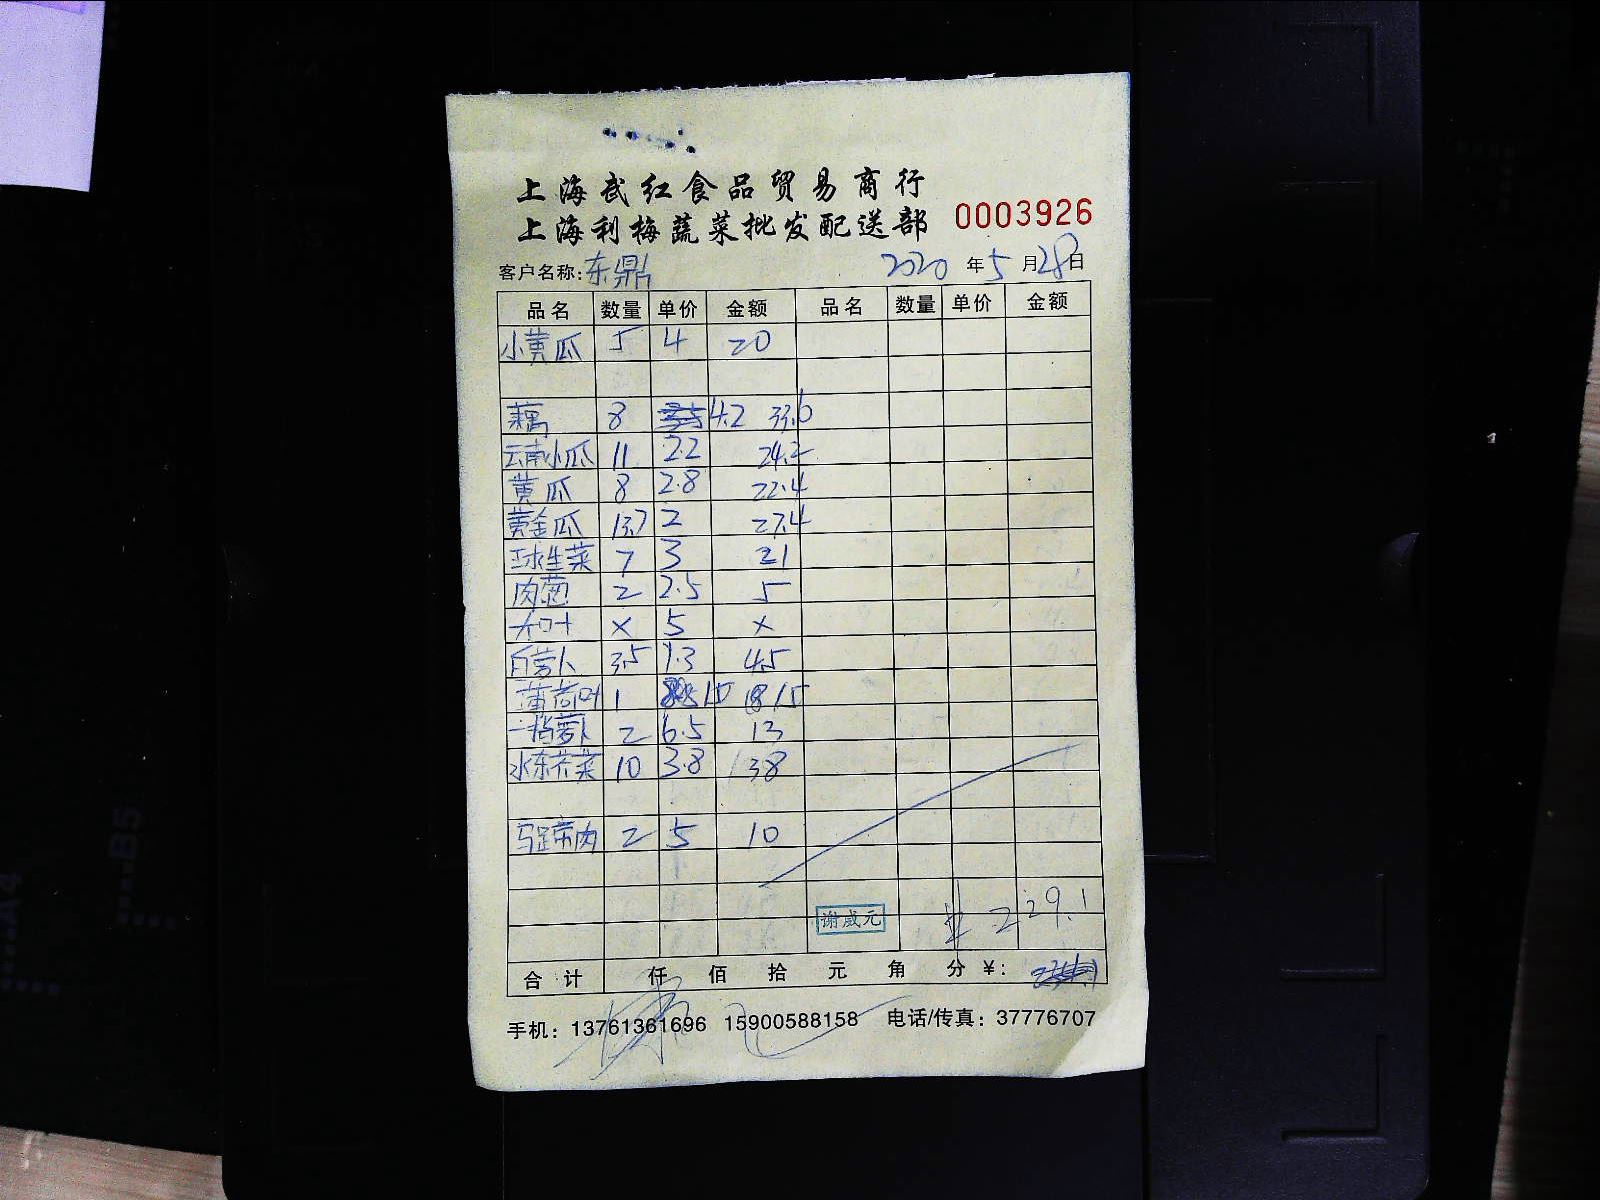 上海武红食品贸易商行
上海利梅蔬菜批发配送部 0003926
客户名称:东鼎 2020年5月28日
品名 数量 单价 金额 品名 数量 单价 金额
小黄瓜 5 4 20
藕 8 4.2 33.6
云南小瓜 11 2.2 24.2
黄瓜 8 2.8 22.4
黄金瓜 13.7 2 27.4
球生菜 7 3 21
肉葱 2 2.5 5
× 5 ×
白萝卜 3.5 1.3 4.5
薄荷叶 1 15 15
萝卜 2 6.5 13
水东芥菜 10 3.8 38
马蹄肉 2 5 10
谢威元 229.1
合计 仟 佰 拾 元 角 分 ¥:
手机: 13761361696 15900588158 电话/传真: 37776707
A4
B5